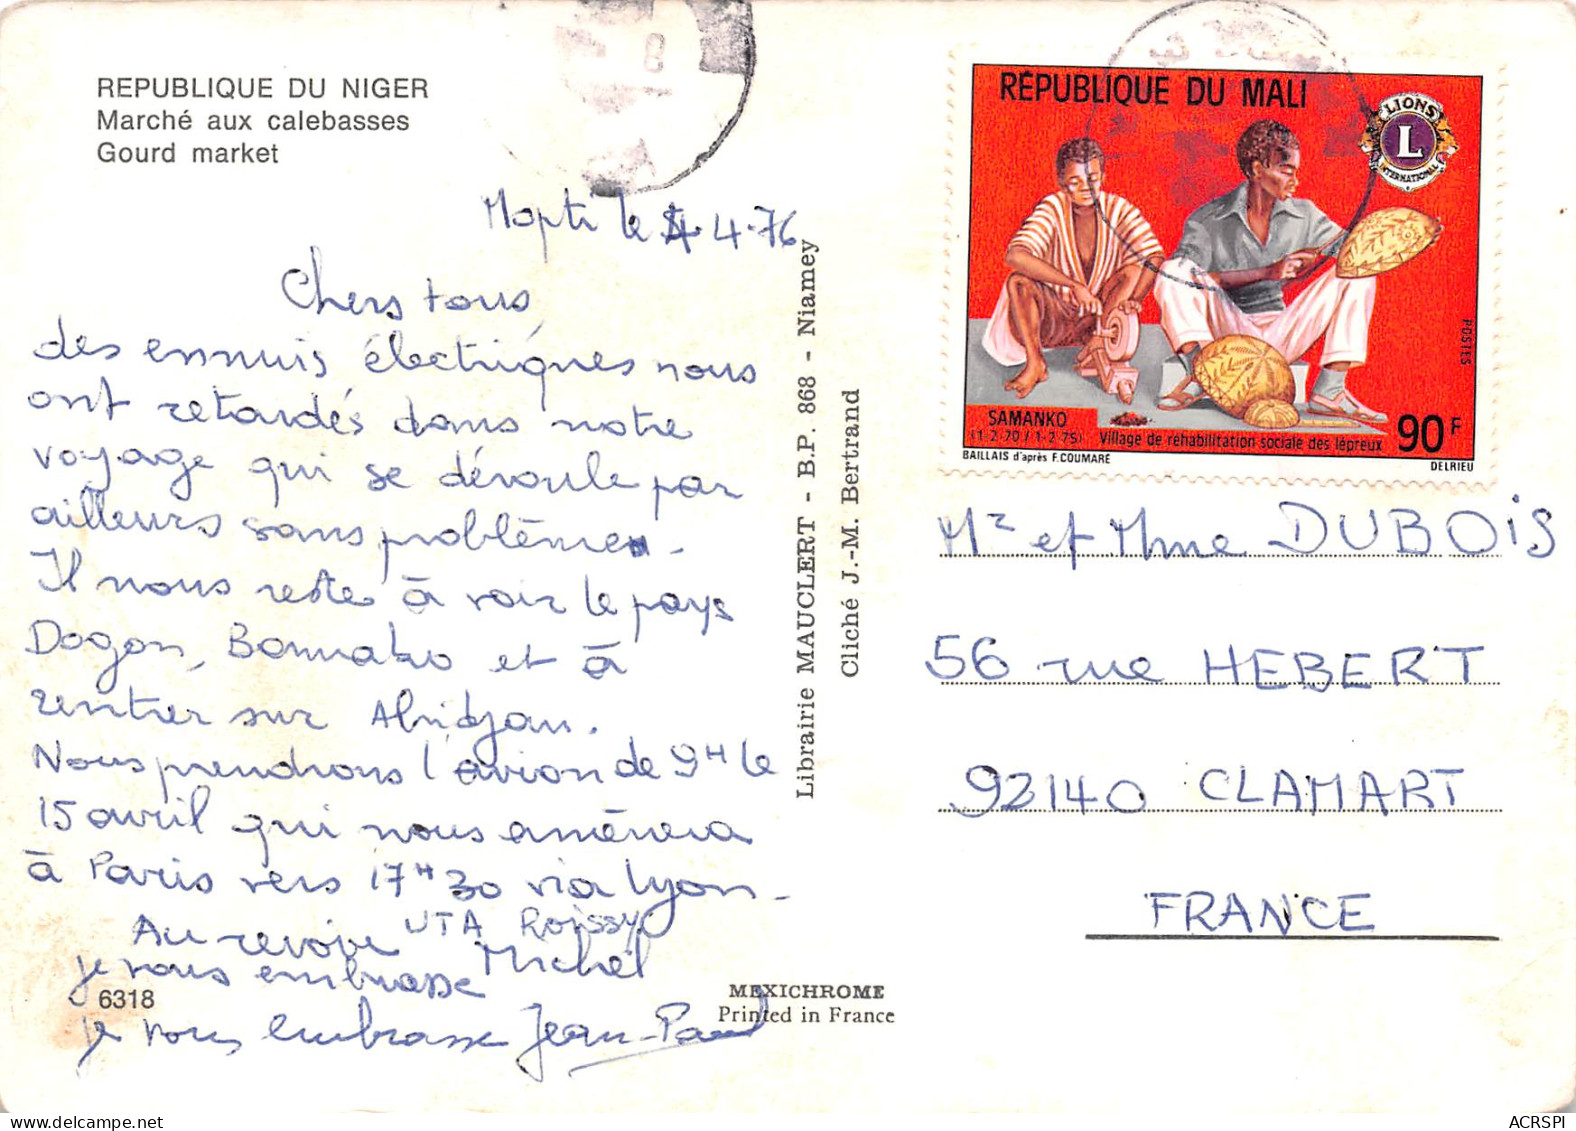 REPUBLIQUE DU NIGER
Marché aux calebasses
Gourd market
8
Mopti le 4.4.76
Chers tous,
des ennuis électriques nous
ont retardés dans notre
voyage qui se déroule par
ailleurs sans problème.
Il nous reste à voir le pays
Dogon, Bamako et à
rentrer sur Abidjan.
Nous prendrons l'avion de 9H le
15 avril qui nous amènera
à Paris vers 17H30 via Lyon-
UTA Roissy.
Au revoir
je vous embrasse Michel
je vous embrasse Jean-Paul
6318
Librairie MAUCLERT - B.P. 868 - Niamey
Cliché J.-M. Bertrand
MEXICHROME
Printed in France
RÉPUBLIQUE DU MALI
LIONS
L
INTERNATIONAL
POSTES
SAMANKO
(1-2-70 / 1-2-75) Village de réhabilitation sociale des lépreux
90F
BAILLAIS d'après F.COUMARE
DELRIEU
Mr et Mme DUBOIS
56 rue HEBERT
92140 CLAMART
FRANCE
ACRSPI